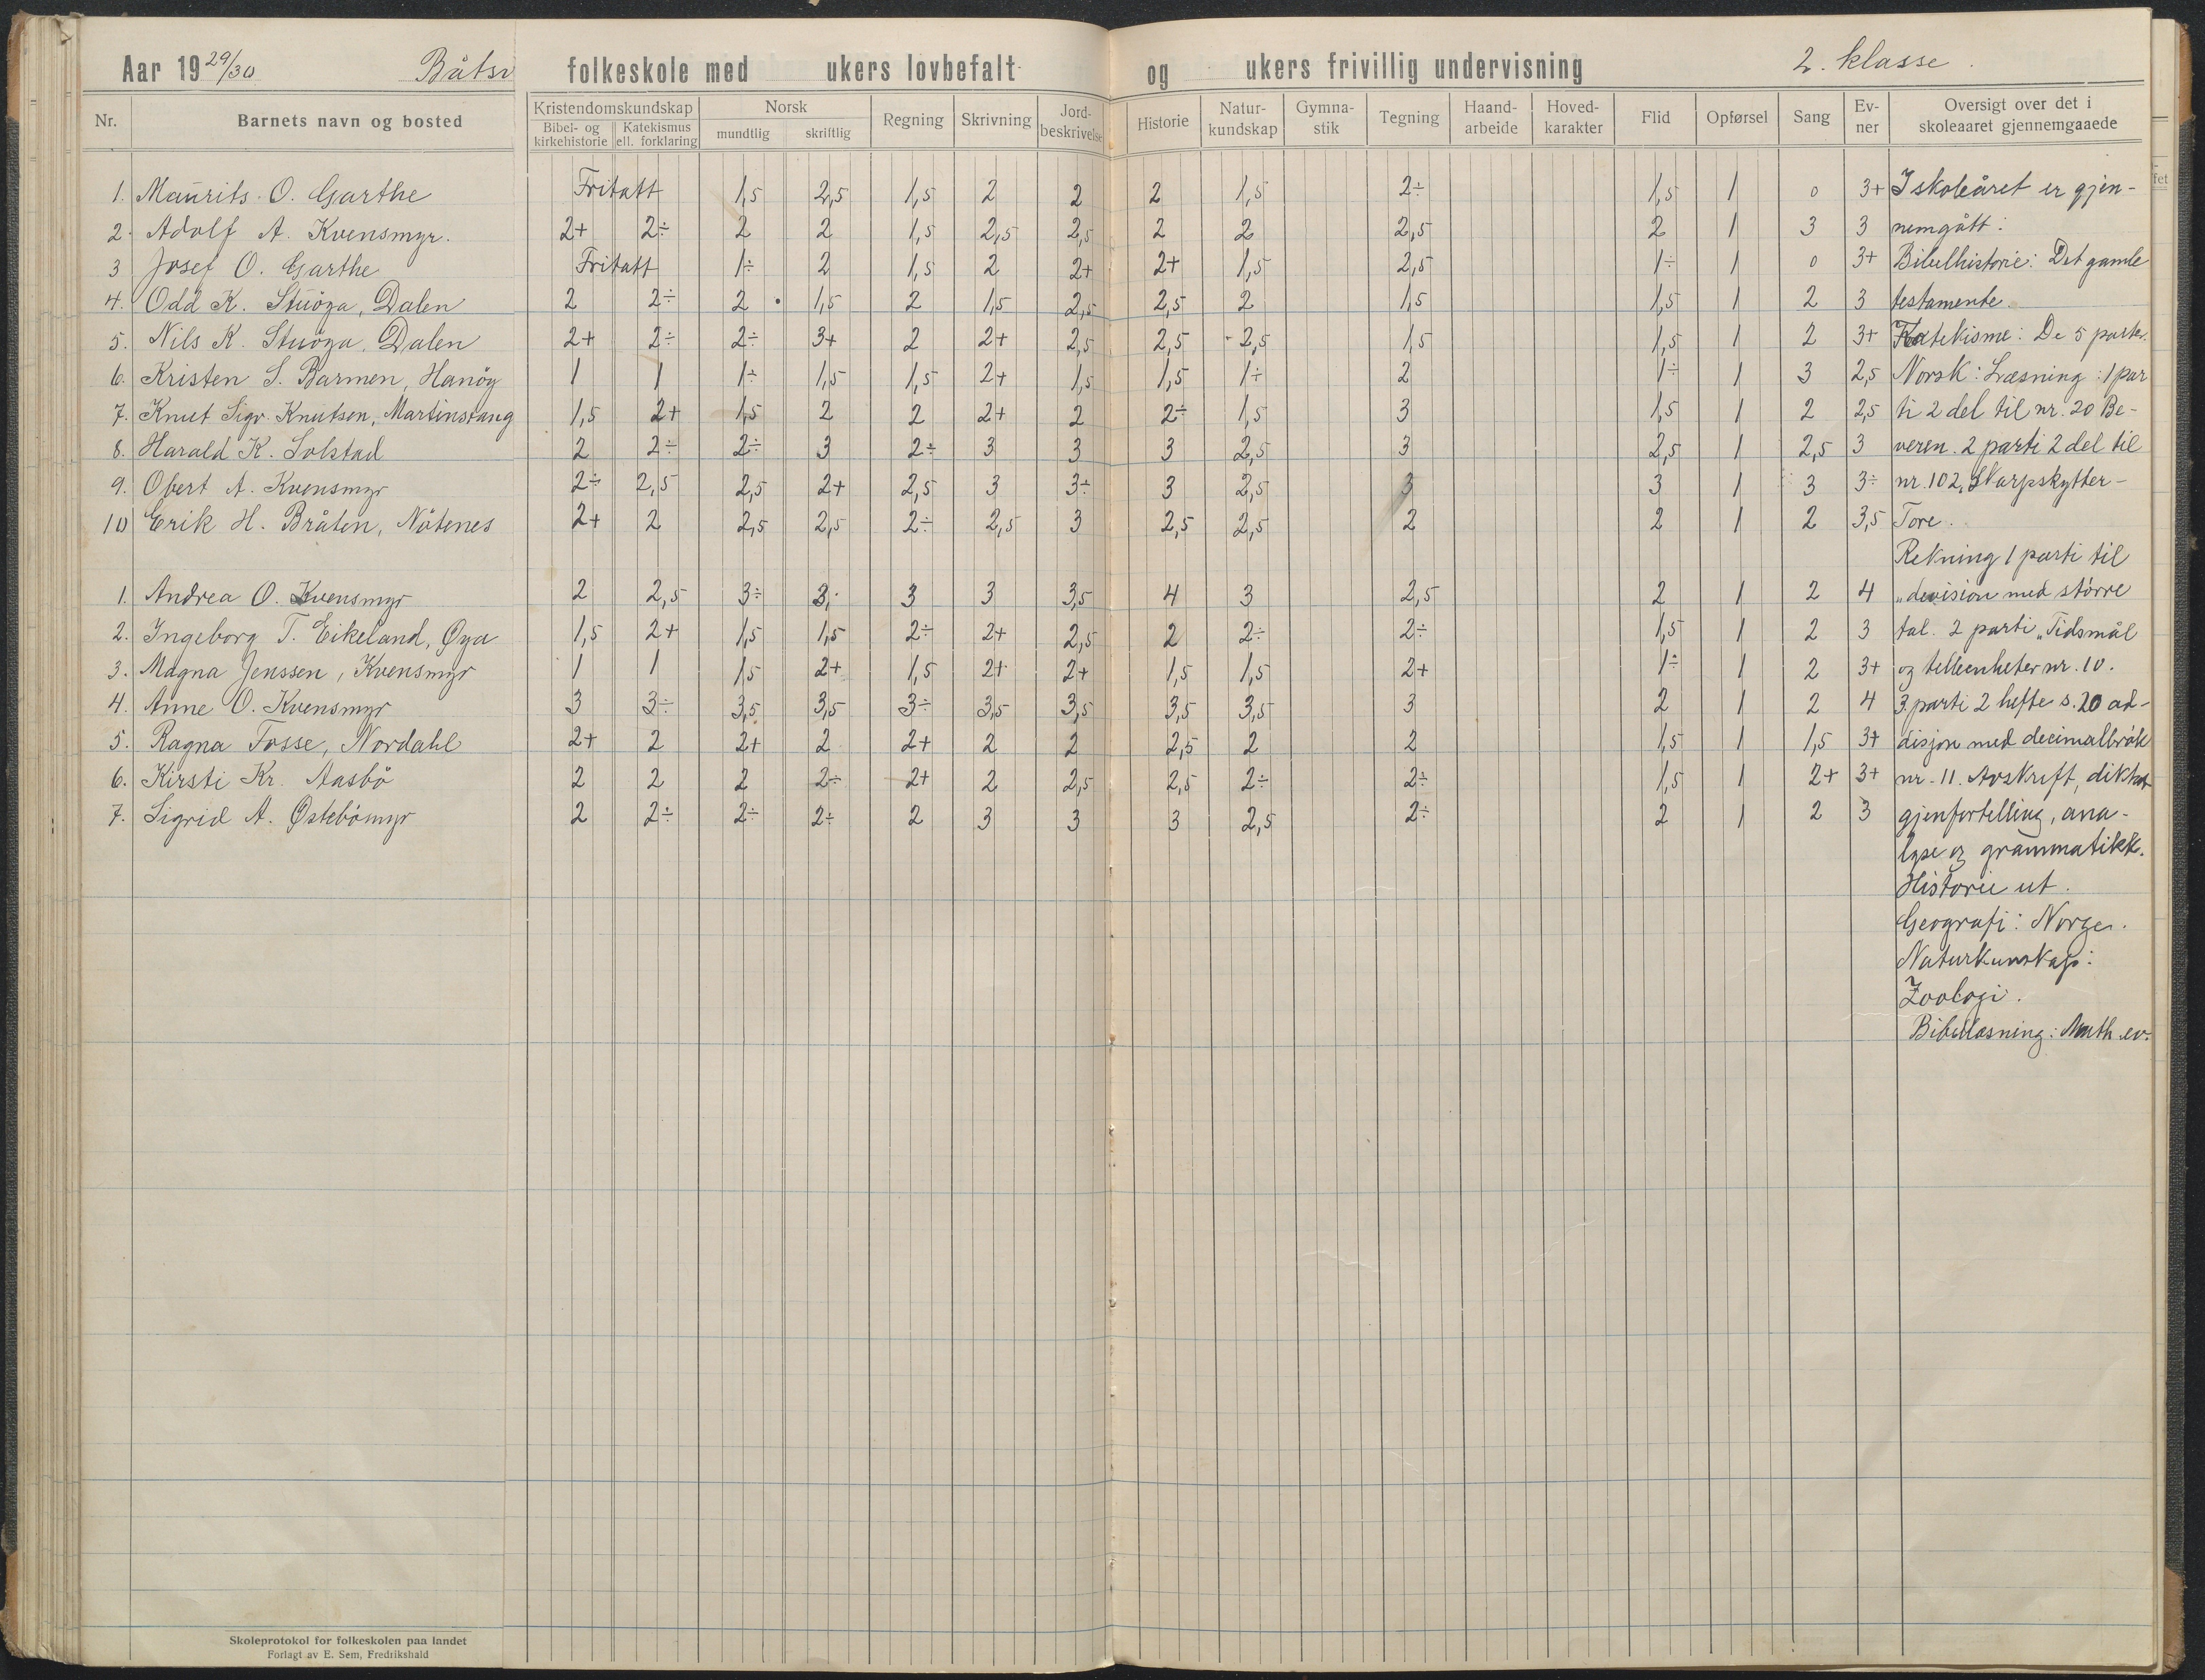 Aar 1929/30 Båtsv folkeskole med ukers lovbefalt og ukers frivillig undervisning 2. klasse.
Nr. Barnets navn og bosted Kristendomskundskap Bibel- og kirkehistorie Katekismus ell. forklaring Norsk mundtlig skriftlig Regning Skrivning Jord-beskrivelse Historie Natur-kundskap Gymna-stik Tegning Haand-arbeide Hoved-karakter Flid Opførsel Sang Ev-ner Oversigt over det i skoleaaret gjennemgaaede
1. Maurits O. Garthe Fritatt 1,5 2,5 1,5 2 2 2 1,5 2÷ 1,5 1 0 3+ I skoleåret er gjen-
2. Adolf A. Kvensmyr. 2+ 2÷ 2 2 1,5 2,5 2,5 2 2 2,5 2 1 3 3 nemgått:
3 Josef O. Garthe Fritatt 1÷ 2 1,5 2 2+ 2+ 1,5 2,5 1÷ 1 0 3+ Bibelhistorie: Det gamle
4. Odd K. Stuöga, Dalen 2 2÷ 2 1,5 2 1,5 2,5 2,5 2 1,5 1,5 1 2 3 testamente.
5. Nils K. Stuöga, Dalen 2+ 2÷ 2÷ 3+ 2 2+ 2,5 2,5 2,5 1,5 1,5 1 2 3+ Katekisme: De 5 parter.
6. Kristen S. Barmen, Hanöy 1 1 1÷ 1,5 1,5 2+ 1,5 1,5 1÷ 2 1÷ 1 3 2,5 Norsk: Læsning: 1 par
7. Knut Sigv. Knutsen, Martinsvang 1,5 2+ 1,5 2 2 2+ 2 2÷ 1,5 3 1,5 1 2 2,5 ti 2 del til nr. 20 Be-
8. Harald K. Solstad 2 2÷ 2÷ 3 2÷ 3 3 3 2,5 3 2,5 1 2,5 3 veren. 2 parti 2 del til
9. Obert A. Kvensmyr 2÷ 2,5 2,5 2+ 2,5 3 3÷ 3 2,5 3 3 1 3 3÷ nr. 102, Skarpskytter-
10 Erik H. Bråten, Nötenes 2+ 2 2,5 2,5 2÷ 2,5 3 2,5 2,5 2 2 1 2 3,5 Tore.
Rekning 1 parti til
1. Andrea O. Kvensmyr 2 2,5 3÷ 3 3 3 3,5 4 3 2,5 2 1 2 4 "devision med större
2. Ingeborg T. Eikeland, Øya 1,5 2+ 1,5 1,5 2÷ 2+ 2,5 2 2÷ 2÷ 1,5 1 2 3 tal. 2 parti "Tidsmål
3. Magna Jenssen, Kvensmyr 1 1 1,5 2+ 1,5 2+ 2+ 1,5 1,5 2+ 1÷ 1 2 3+ og telleenheter nr. 10.
4. Anne O. Kvensmyr 3 3÷ 3,5 3,5 3÷ 3,5 3,5 3,5 3,5 3 2 1 2 4 3 parti 2 hefte s. 20 ad-
5. Ragna Fosse, Nordahl 2+ 2 2+ 2 2+ 2 2 2,5 2 2 1,5 1 1,5 3+ disjon med decimalbrök
6. Kirsti Kr. Aasbö 2 2 2 2÷ 2+ 2 2,5 2,5 2÷ 2÷ 1,5 1 2+ 3+ nr. 11. Avskrift, diktat
7. Sigrid A. Østebömyr 2 2÷ 2÷ 2÷ 2 3 3 3 2,5 2÷ 2 1 2 3 gjenfortelling, ana-
lyse og grammatikk.
Historie ut.
Geografi: Norge.
Naturkunskap:
Zoologi.
Bibellæsning: Math. ev.
Skoleprotokol for folkeskolen paa landet
Forlagt av E. Sem, Fredrikshald